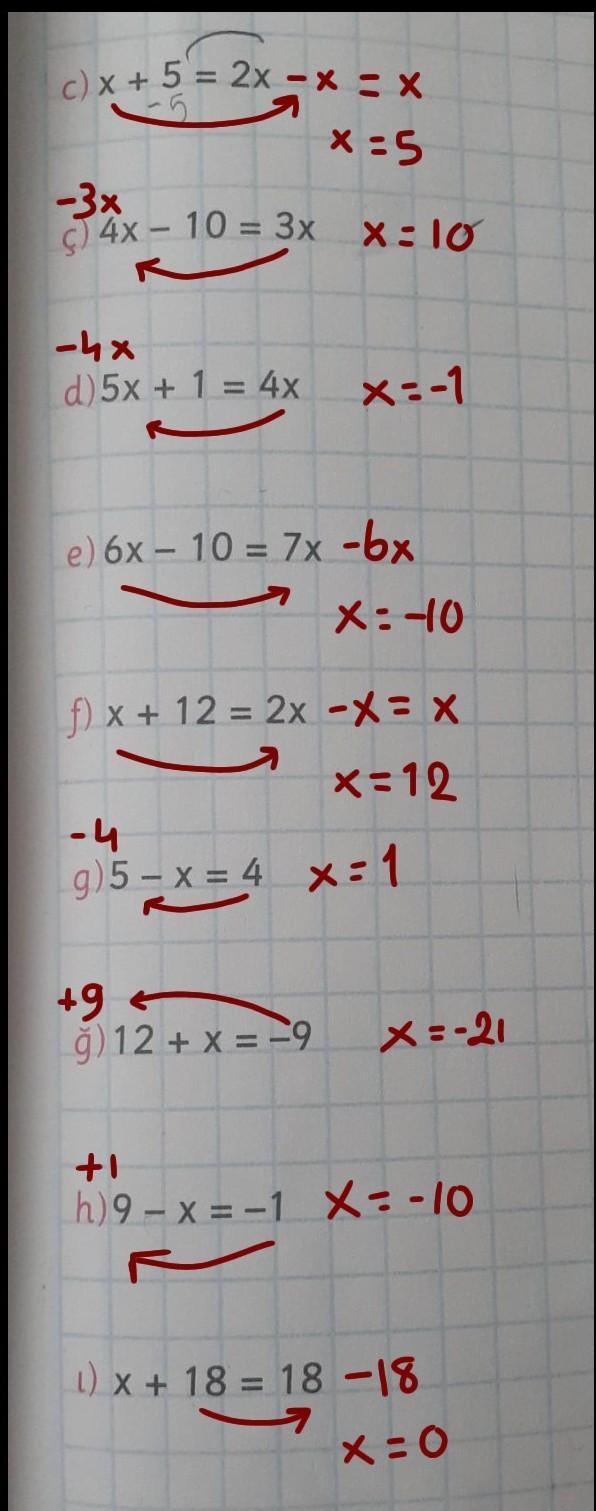 c) x + 5 = 2x - x = x
-5
x = 5
-3x
ç) 4x – 10 = 3x x = 10
-4x
d) 5x + 1 = 4x x = -1
e) 6x – 10 = 7x -6x
x = -10
f) x + 12 = 2x - x = x
x = 12
-4
g) 5 – x = 4 x = 1
+9
ğ) 12 + x = –9 x = -21
+1
h) 9 – x = –1 x = -10
ı) x + 18 = 18 -18
x = 0